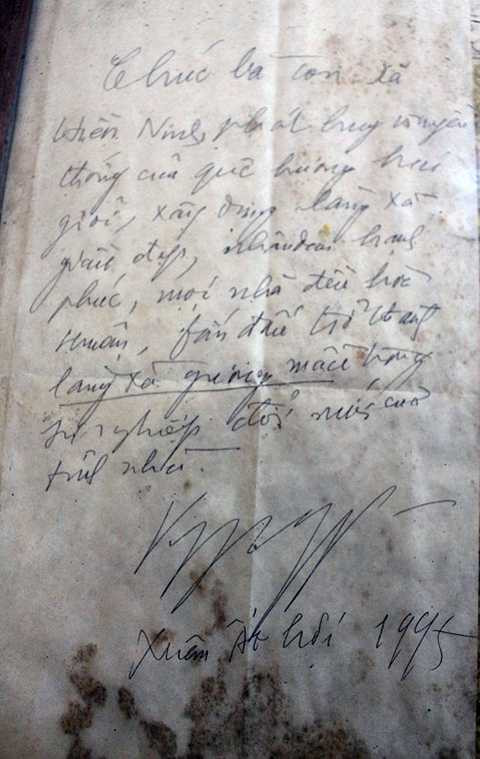 Chúc bà con xã
Hiền Ninh, phát huy truyền
thống của quê hương hai
giỏi, xây dựng làng xã
giàu đẹp, nhân dân hạnh
phúc, mọi nhà đều hòa
thuận, phấn đấu trở thành
làng xã gương mẫu trong
sự nghiệp đổi mới của
tỉnh nhà.
Xuân Ất Hợi 1995